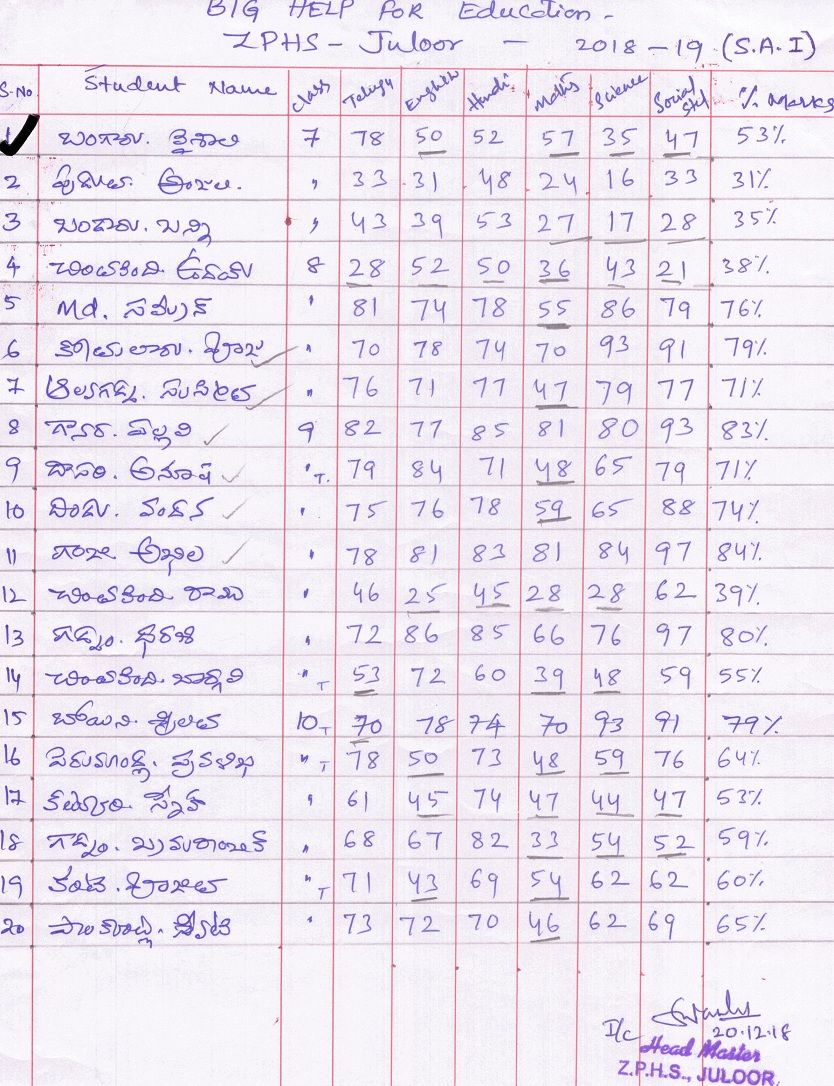 BIG HELP FOR Education -
ZPHS - Juloor - 2018-19 (S.A.I)
S.No Student Name class Telugu English Hindi Maths Science Social Std % Marks
1 బంగారు. వైశాలి 7 78 50 52 57 35 47 53%
2 అంజలి. " 33 31 48 24 16 33 31%
3 బండారు. బన్ని " 43 39 53 27 17 28 35%
4 చింతకింది. ఉదయ్ 8 28 52 50 36 43 21 38%
5 Md. సమీర్ " 81 74 78 55 86 79 76%
6 " 70 78 74 70 93 91 79%
7 " 76 71 77 47 79 77 71%
8 పల్లవి 9 82 77 85 81 80 93 83%
9 దాసరి. అనూష " T. 79 84 71 48 65 79 71%
10 దిండు. వందన " 75 76 78 59 65 88 74%
11 గంజి అఖిల " 78 81 83 81 84 97 84%
12 చింతకింది రాము " 46 25 45 28 28 62 39%
13 గడ్డం. ధరణి " 72 86 85 66 76 97 80%
14 చింతకింది. భార్గవి " T 53 72 60 39 48 59 55%
15 బోయిని. శ్రీలత 10 T 70 78 74 70 93 91 79%
16 పెరుమాండ్ల. ప్రవళిఖ " T 78 50 73 48 59 76 64%
17 " 61 45 74 47 44 47 53%
18 గడ్డం. " 68 67 82 33 54 52 59%
19 " T 71 43 69 54 62 62 60%
20 " 73 72 70 46 62 69 65%
20.12.18
I/c Head Master
Z.P.H.S., JULOOR.